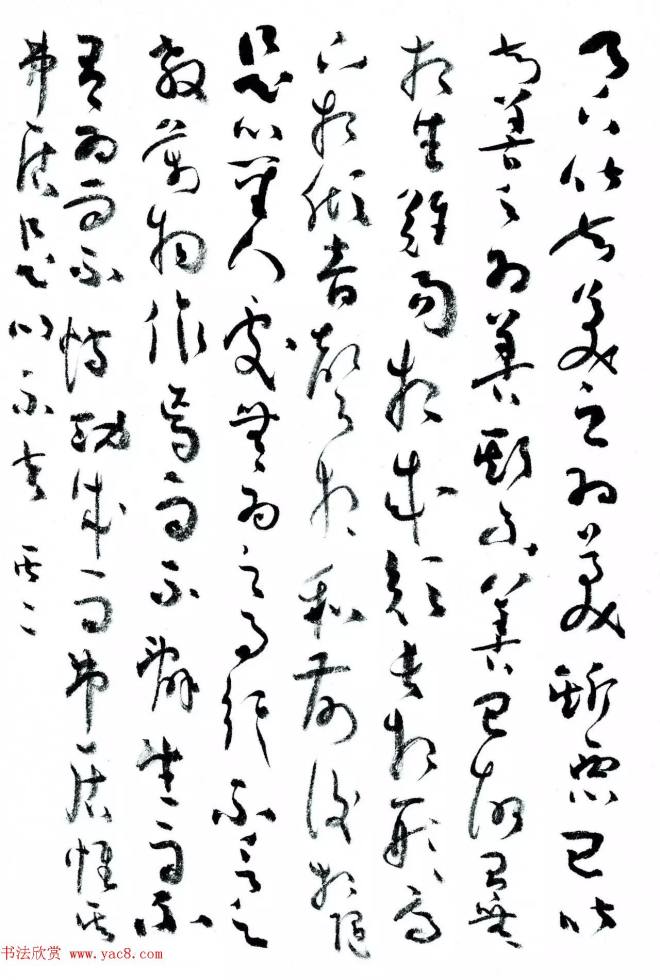 天下皆知美之為美斯惡已皆
知善之為善斯不善已故有無
相生難易相成短長相形高
下相傾音聲相和前後相隨
是以聖人處無為之事行不言之
教萬物作焉而不辭生而不
有為而不恃功成而弗居惟其
弗居是以不去 其二
书法欣赏 www.yac8.com